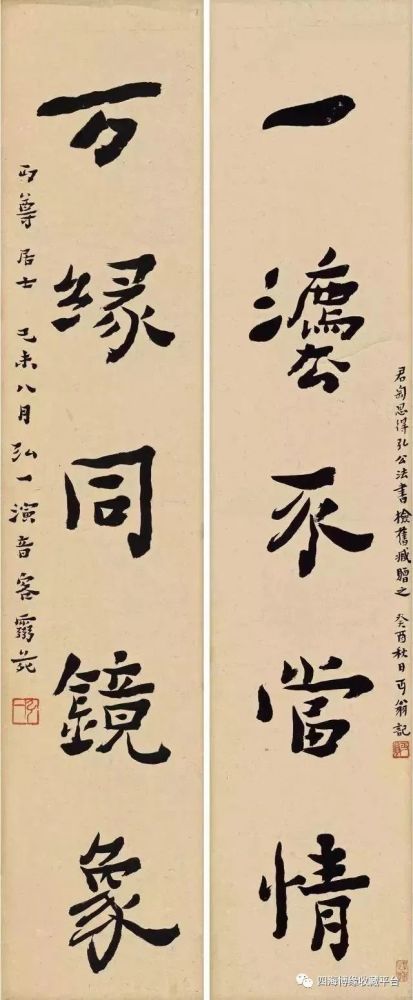 一灋不當情
君匋思得弘公法書檢舊臧贈之 癸酉秋日丏翁記
万緣同鏡象
丏尊居士 己未八月弘一演音客靈苑
弘一
四海博缘收藏平台